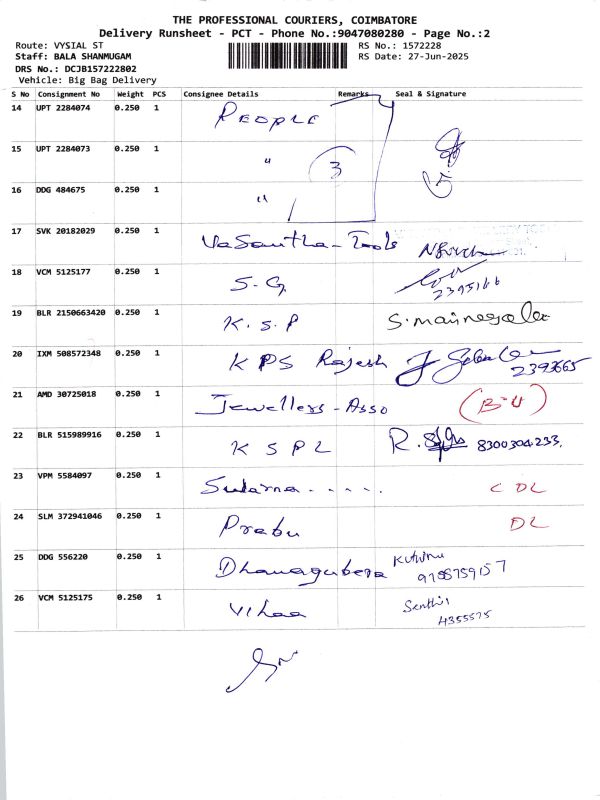 THE PROFESSIONAL COURIERS, COIMBATORE
Delivery Runsheet - PCT - Phone No.:9047080280 - Page No.:2
Route: VYSIAL ST
RS No.: 1572228
Staff: BALA SHANMUGAM
RS Date: 27-Jun-2025
DRS No.: DCJB157222802
Vehicle: Big Bag Delivery
S No Consignment No Weight PCS Consignee Details Remarks Seal & Signature
14 UPT 2284074 0.250 1 PEOPLE
15 UPT 2284073 0.250 1 " 3
16 DDG 484675 0.250 1 "
17 SVK 20182029 0.250 1 Vasantha - Tools
18 VCM 5125177 0.250 1 S. G
2395166
19 BLR 2150663420 0.250 1 K. S. P
20 IXM 508572348 0.250 1 KPS Rajesh
2393665
21 AMD 30725018 0.250 1 Jewellers - Asso
22 BLR 515989916 0.250 1 K S P L R. 8300304233.
23 VPM 5584097 0.250 1 CDL
24 SLM 372941046 0.250 1 Prabu DL
25 DDG 556220 0.250 1 Dhanagubera
9788759157
26 VCM 5125175 0.250 1 Vihaa Senthil
4355575